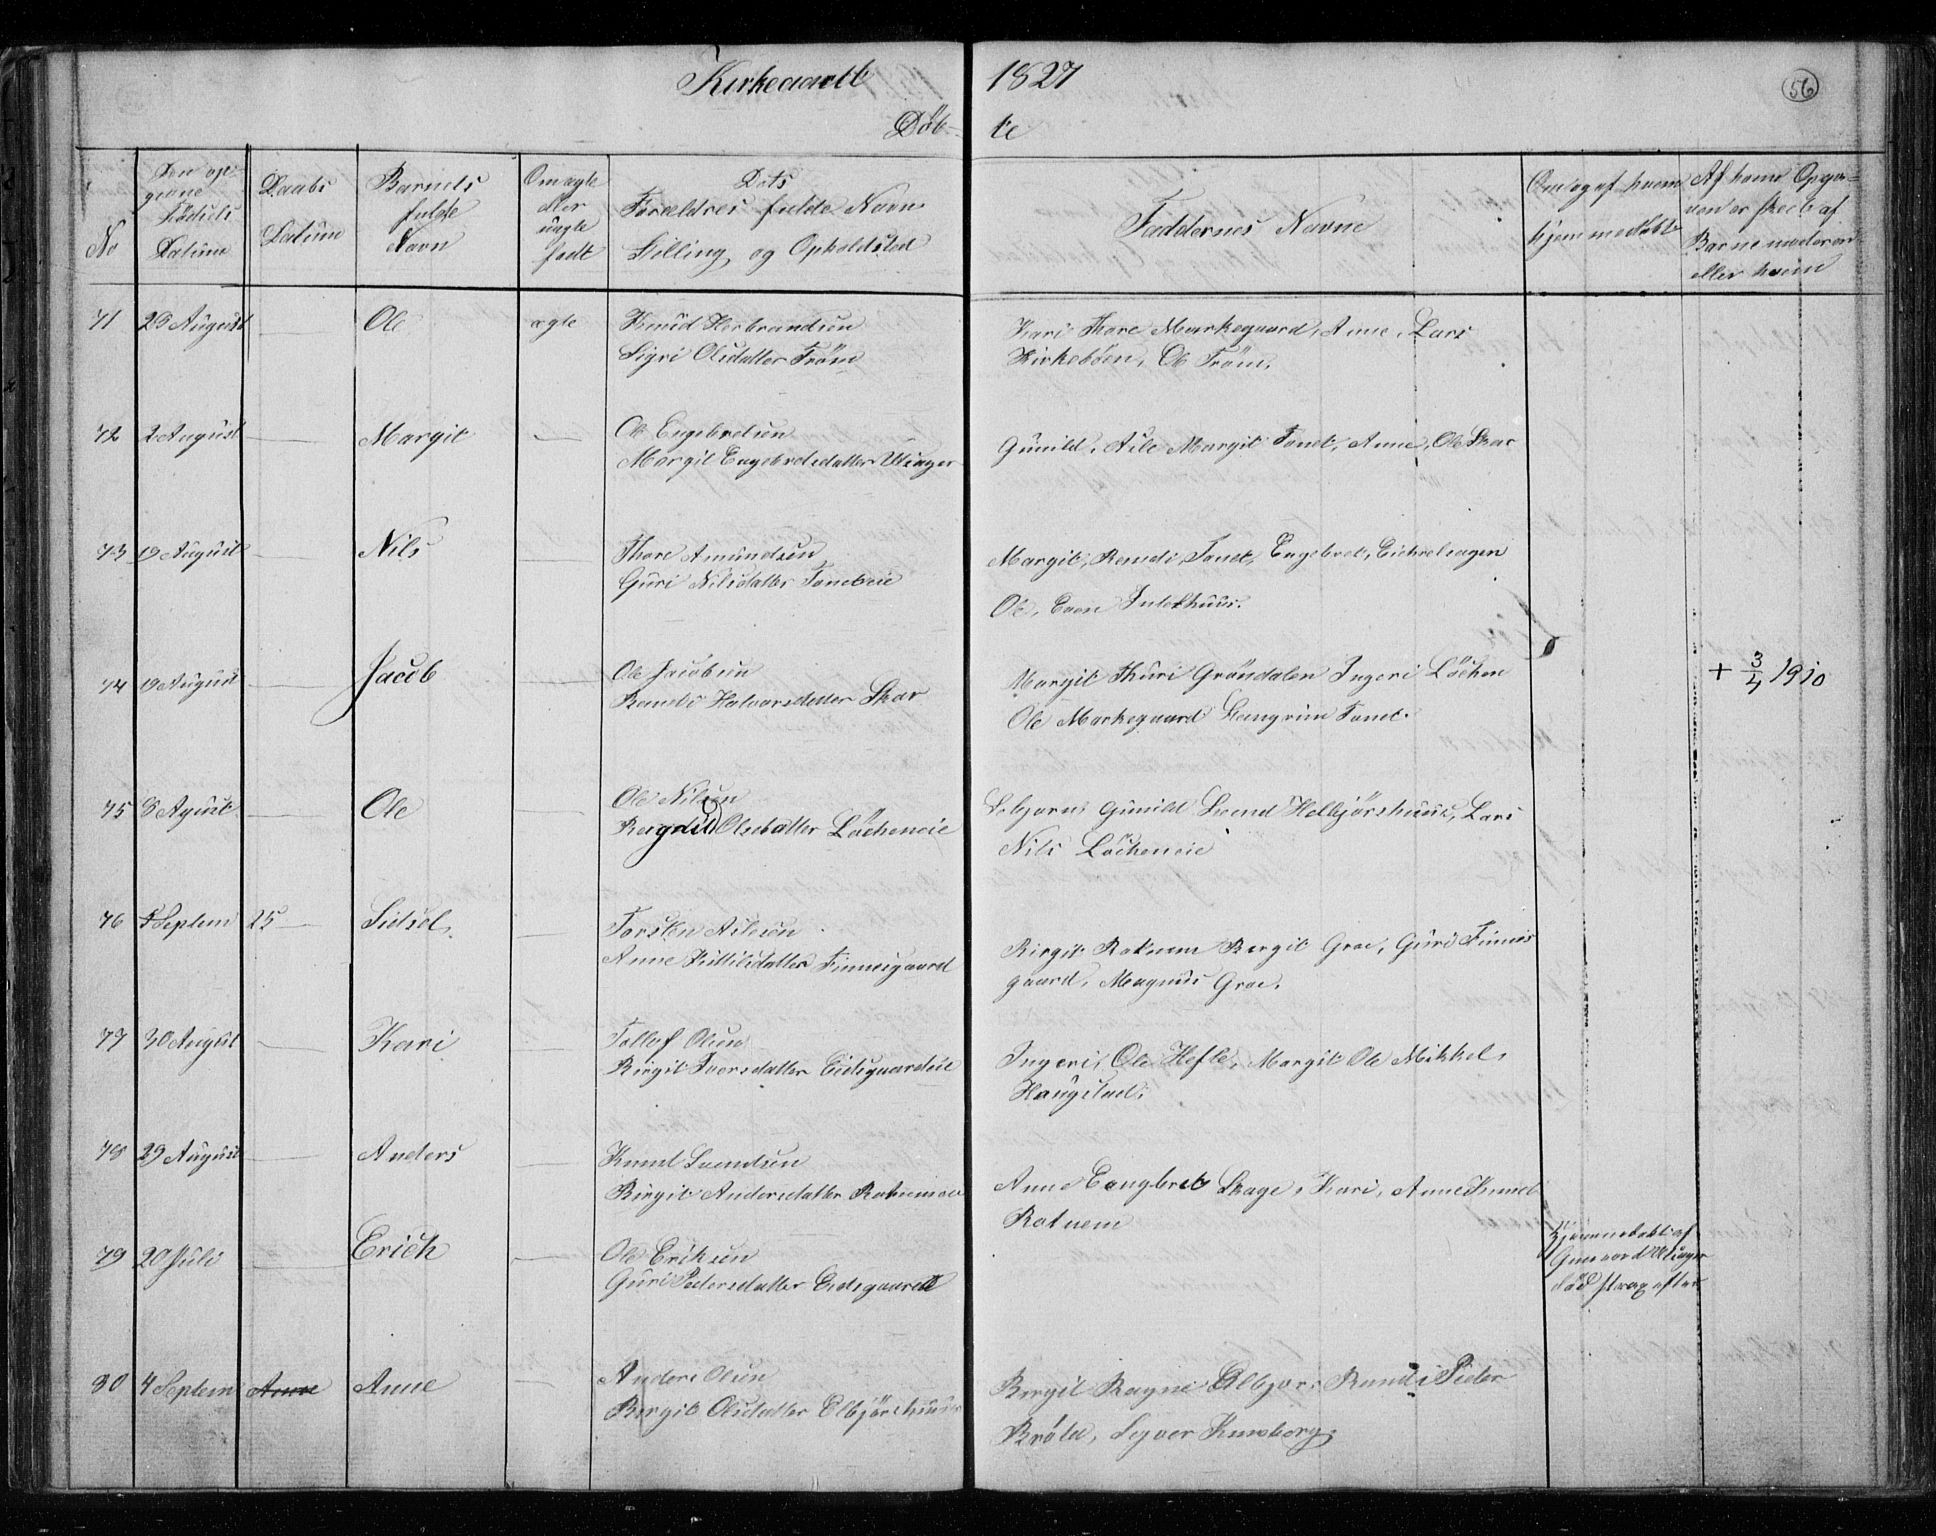 Kirkeaaret 1827
56
Döb- te
No
Den op-
givne
Födsels
Datum
Daabs
Datum
Barnets
fulde
Navn
Om ægte
eller
uægte
født
Dets
Forældres fulde Navn
Stilling og Opholdsted
Faddernes Navne
Om og af hvem
hjemmedøbt
Af hvem Opga-
ven er skeet af
Barnemoderen
eller hvem
71 23 August Ole ægte Knud Herbrandsen
Sigri Olsdatter Tröm
Kari Thore Markegaard, Anne, Lars
Kirkeböen, Ole Tröm,
72 2 August Margit Ole Engebretsen
Margit Engebretsdatter Ulsager
Gunild, Asle Margit Tonet, Anne, Ole Skar
73 19 August Nils Thore Amundsen
Guri Nilsdatter Toneteie
Margit, Randi, Tonet, Engebret,
Ole, Even
74 19 August Jacob Ole Jacobsen
Randi Halvorsdatter Skar
Margit Thuri Gröndalen Ingeri Löchen
Ole Markegaard Langrim Tonet.
+ 3/4 1910
75 8 Agust Ole Ole Nilsen
Olsdatter Löcheneie
Gunild Svend Helbjörshuus, Lars
Nils Löcheneie
76 5 Septem 25 Sidsel Torsten Aslesen
Anne Kittilsdatter Finnesgaard
Birgit Rotnem Bergit Groe, Guri Finnes
gaard, Magnus Groe.
77 30 August Kari Tollef Olsen
Birgit Iversdatter Eidsgaardeie
Ingeri, Ole Hefte, Margit Ole Mikkel,
Haugstad,
78 29 August Anders Knud Svendsen
Birgit Andersdatter
Anne Eengbret Skage, Kari, Anne Knud
Rotnem
79 20 Juli Erich Ole Eriksen
Guri Pedersdatter Eidsgaard
Hjemmedøbt af
Gunvord Ulsager
död strax efter
80 4 Septem Anne Anne Anders Olsen
Bergit Olsdatter Elbjörshuus
Bergit Ragne Elbjörs, Randi Peder
Bröto, Sygver